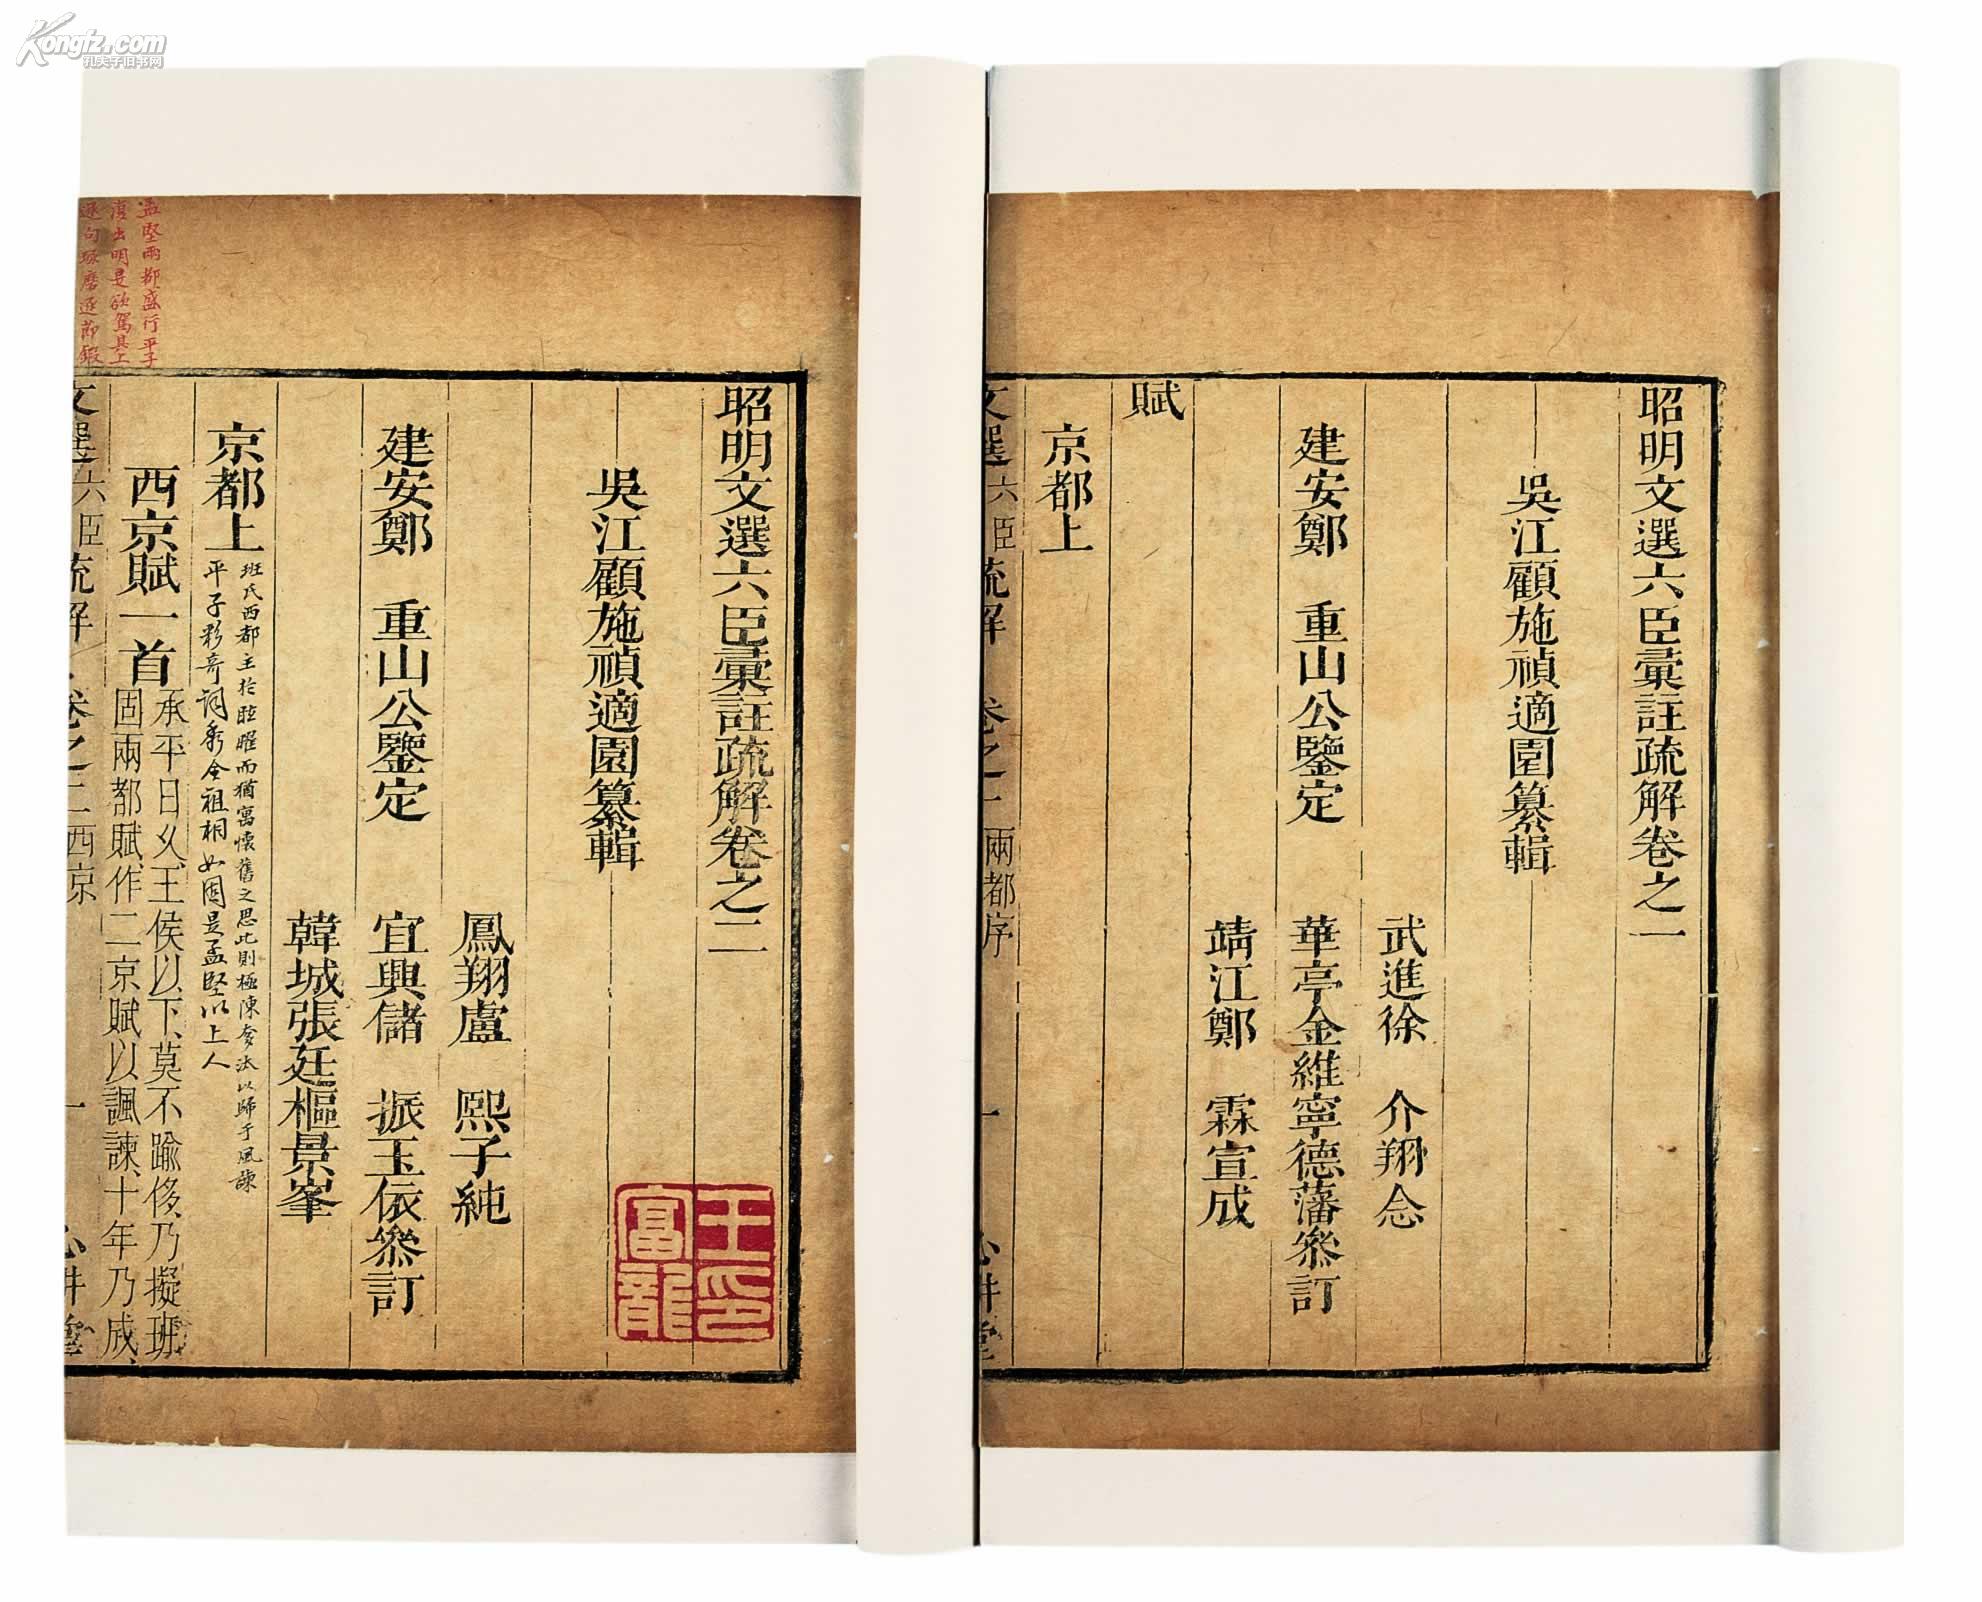 Kongfz.com
孔夫子旧书网
昭明文選六臣彙註疏解卷之一
吳江顧施禎適園纂輯
武進徐 介翔念
建安鄭 重山公鑒定 華亭金維寧德藩叅訂
靖江鄭 霖宣成
賦
京都上
文選六臣疏解 卷之一 兩都序 一 心耕堂
昭明文選六臣彙註疏解卷之二
吳江顧施禎適園纂輯
鳳翔盧 熙子純
建安鄭 重山公鑒定 宜興儲 振玉依叅訂
韓城張廷樞景峯
王印富龍
京都上
班氏西都主於眩曜而猶寓懷舊之思此則極陳奓汰以歸于風諫
平子夥奇詞秀全祖相如固是孟堅以上人
西京賦一首
承平日久、王侯以下、莫不踰侈、乃擬班
固兩都賦、作二京賦、以諷諫、十年乃成、
文選六臣疏解 卷之二 西京 一 心耕堂
孟堅兩都盛行平子
復出明是欲駕其上
逐句琢磨逐節鍛